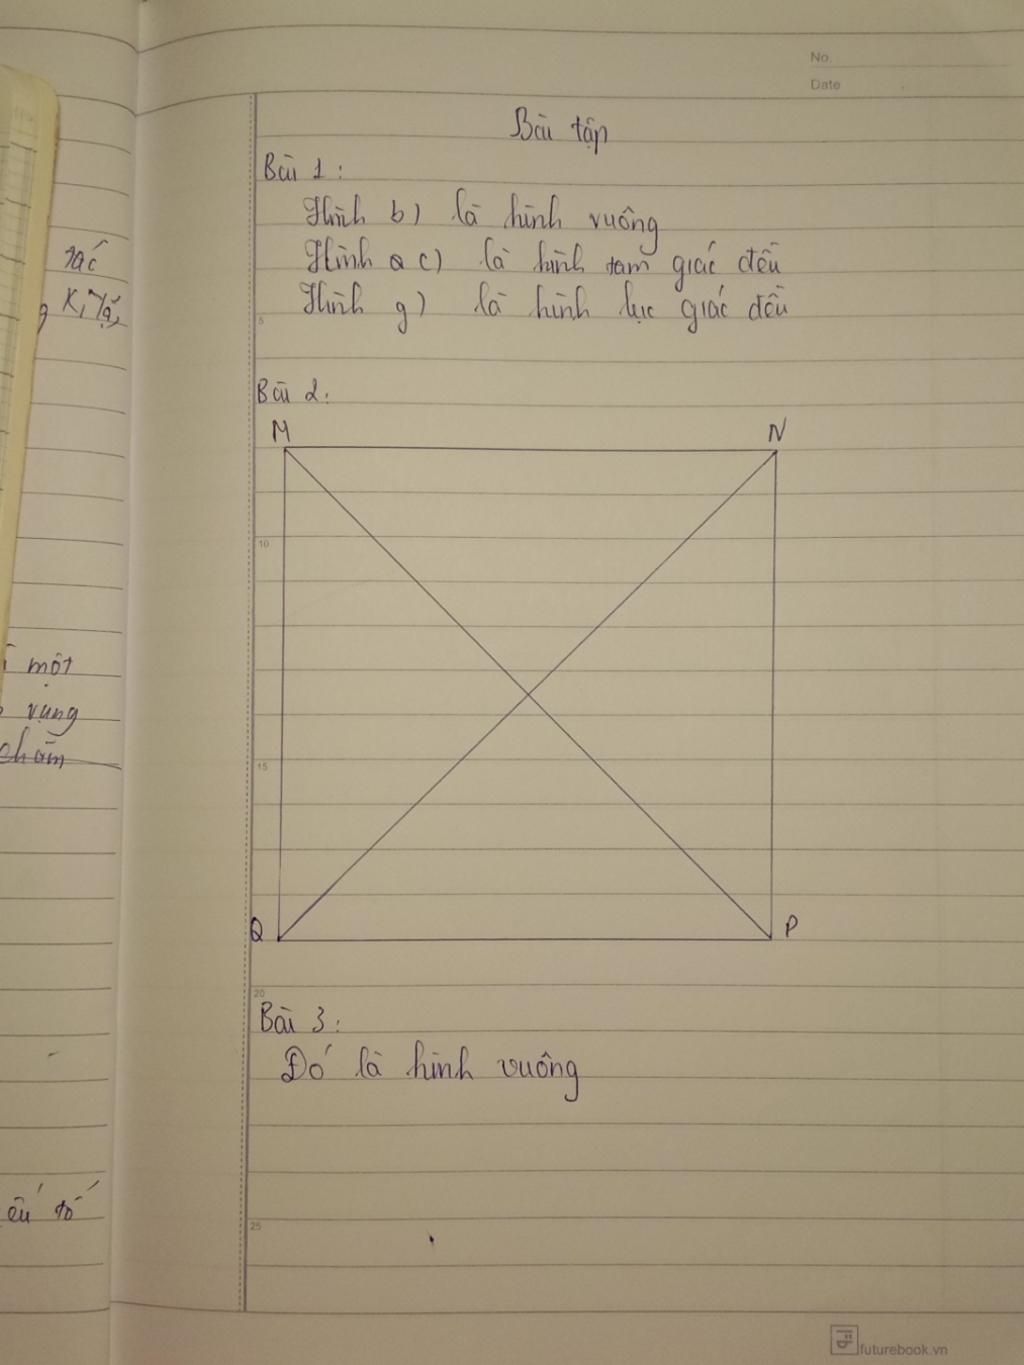 No.
Date
Bài tập
Bài 1:
Hình b) là hình vuông
Hình c) là hình tam giác đều
Hình g) là hình lục giác đều
5
Bài 2:
M N
10
15
Q P
20
Bài 3:
Đó là hình vuông
25
futurebook.vn
tác
một
vụng
chấm
tố